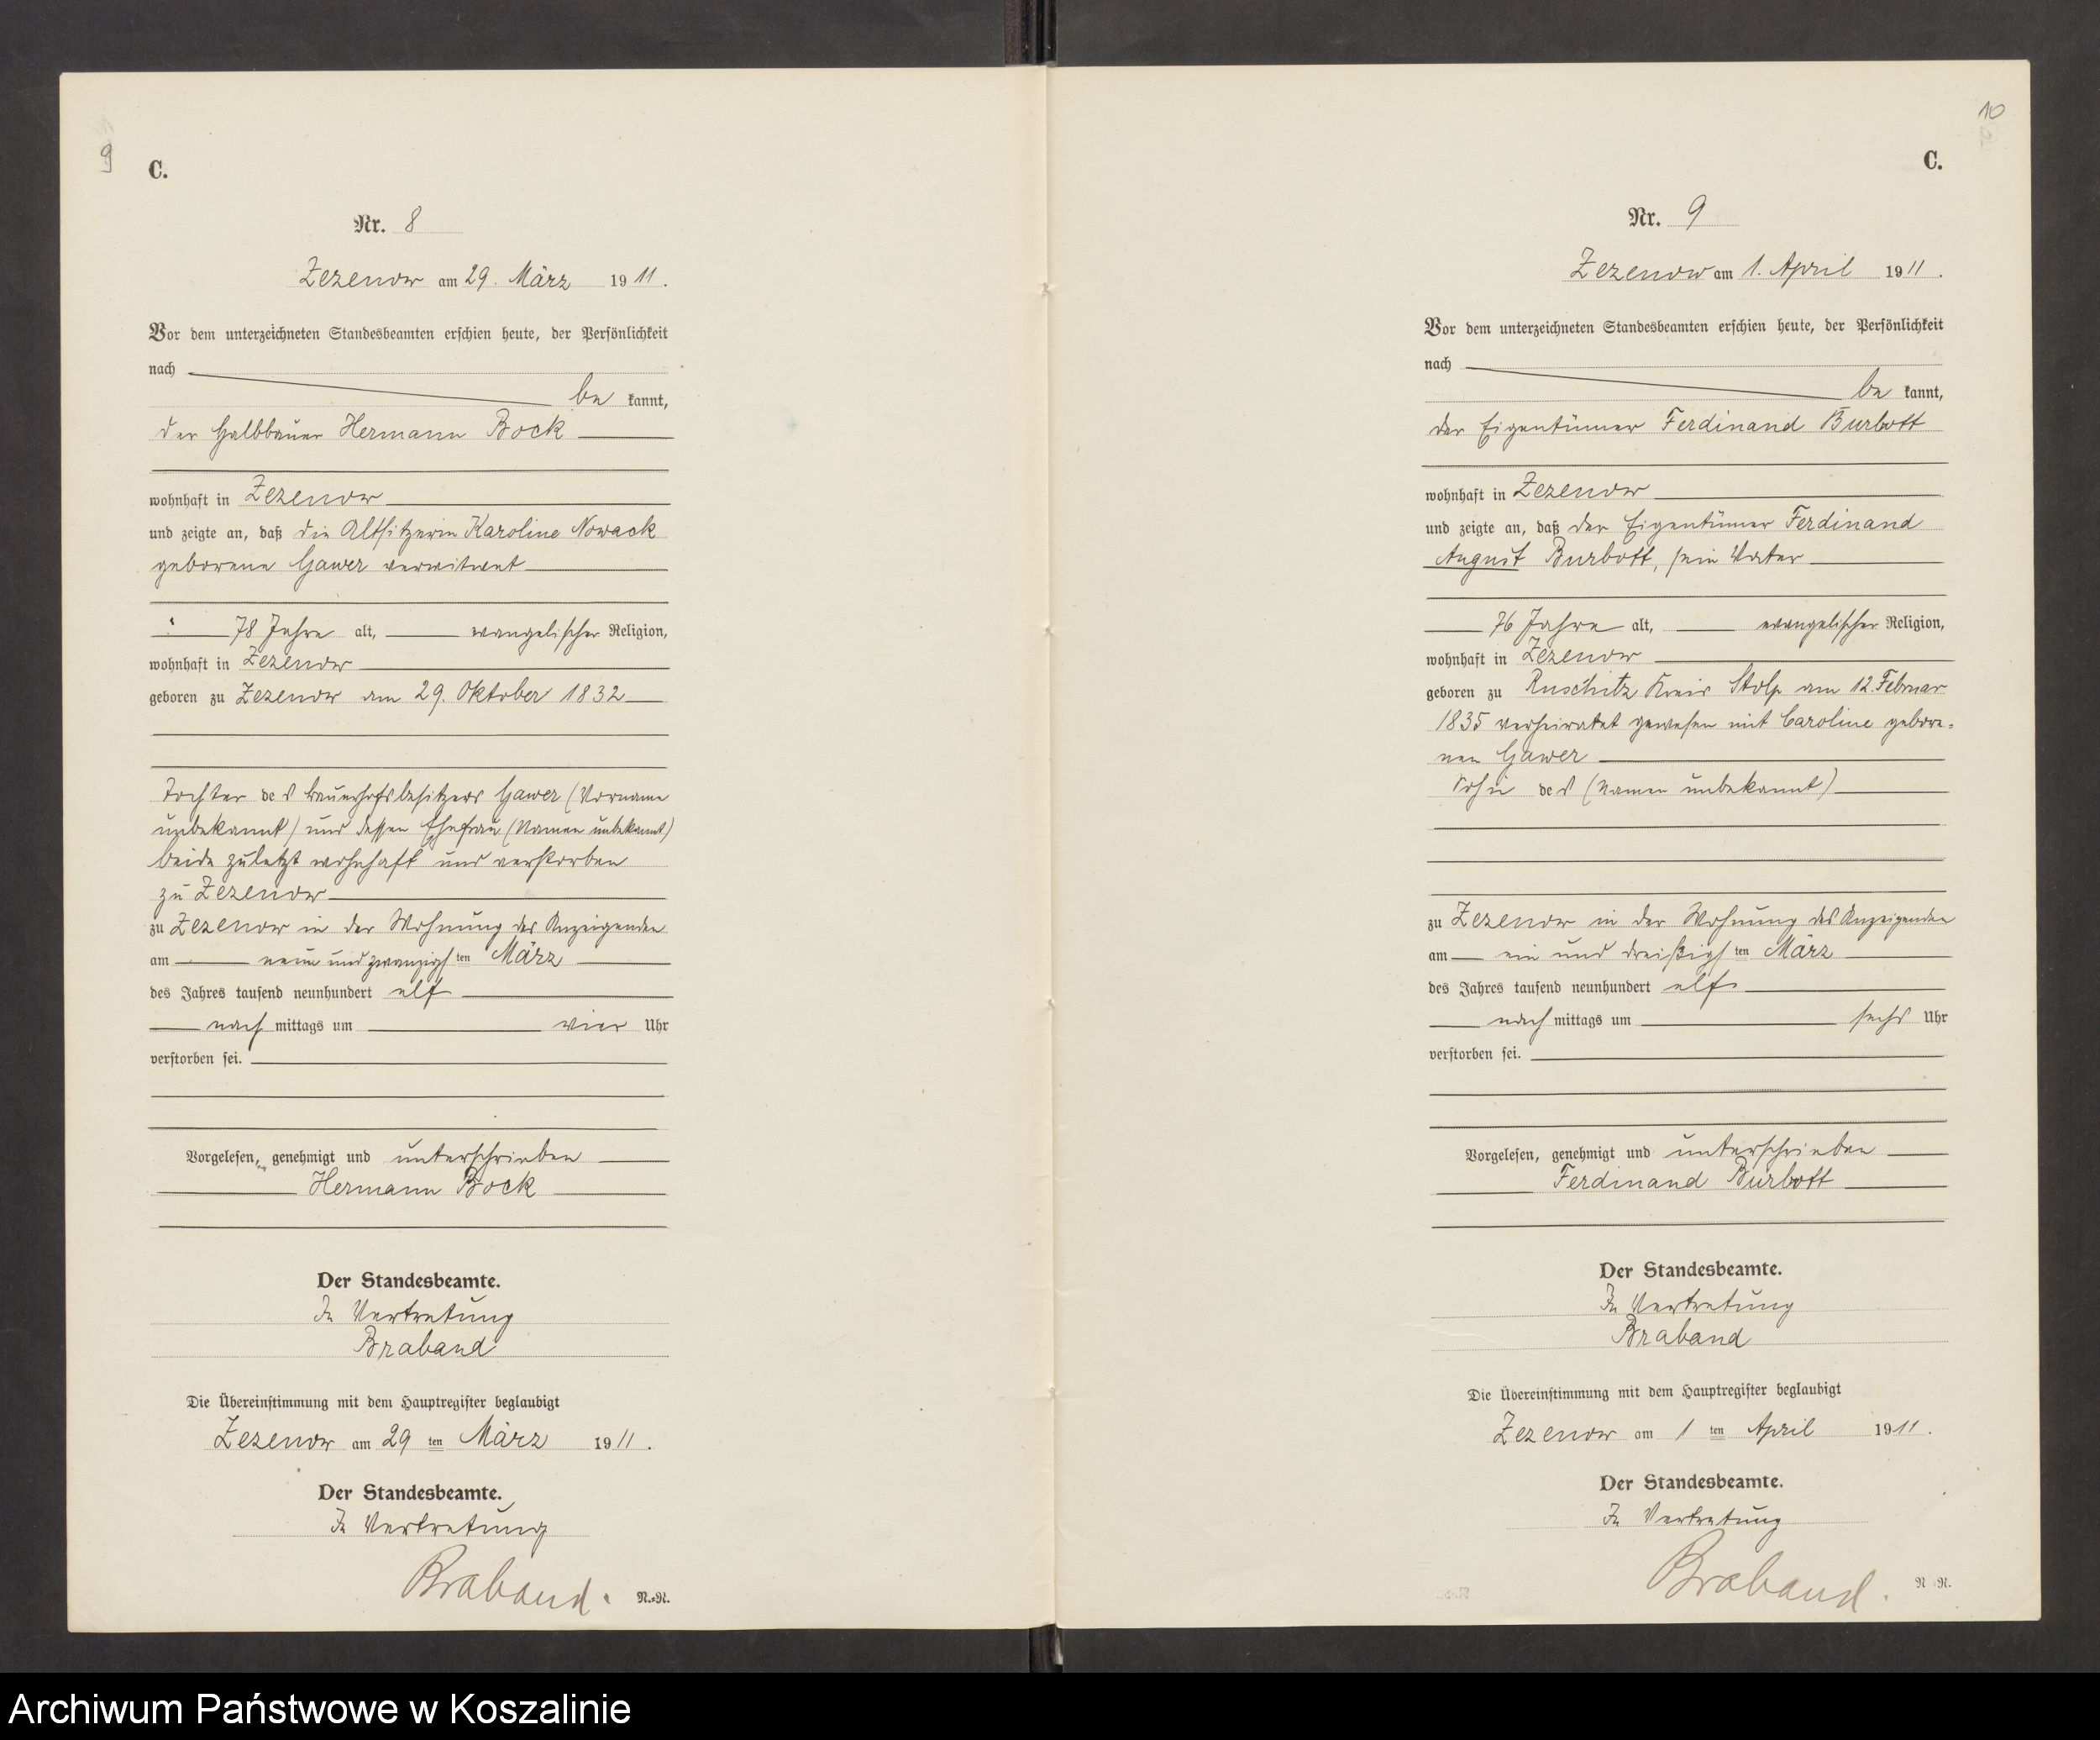 9
C.
Nr. 8
Zezenow am 29. März 1911.
Vor dem unterzeichneten Standesbeamten erschien heute, der Persönlichkeit
nach
be kannt,
der Halbbauer Hermann Bock
wohnhaft in Zezenow
und zeigte an, daß die Altsitzerin Karoline Nowack
geborene Gawer verwitwet
78 Jahre alt, evangelischer Religion,
wohnhaft in Zezenow
geboren zu Zezenow am 29. Oktober 1832
Tochter des Bauerhofsbesitzers Gawer (Vorname
unbekannt) und dessen Ehefrau (Namen unbekannt)
beide zuletzt wohnhaft und verstorben
zu Zezenow
zu Zezenow in der Wohnung des Anzeigenden
am neun und zwanzigsten März
des Jahres tausend neunhundert elf
nach mittags um vier Uhr
verstorben sei.
Vorgelesen, genehmigt und unterschrieben
Hermann Bock
Der Standesbeamte.
In Vertretung
Braband
Die Übereinstimmung mit dem Hauptregister beglaubigt
Zezenow am 29 ten März 1911.
Der Standesbeamte.
In Vertretung
Braband.
N.=N.
10
C.
Nr. 9
Zezenow am 1. April 1911.
Vor dem unterzeichneten Standesbeamten erschien heute, der Persönlichkeit
nach
be kannt,
der Eigentümer Ferdinand Burbott
wohnhaft in Zezenow
und zeigte an, daß der Eigentümer Ferdinand
August Burbott, sein Vater
76 Jahre alt, evangelischer Religion,
wohnhaft in Zezenow
geboren zu Ruschitz Kreis Stolp am 12. Februar
1835 verheiratet gewesen mit Caroline gebore=
nen Gawer
Sohn des (Namen unbekannt)
zu Zezenow in der Wohnung des Anzeigenden
am ein und dreißigsten März
des Jahres tausend neunhundert elf
nach mittags um sechs Uhr
verstorben sei.
Vorgelesen, genehmigt und unterschrieben
Ferdinand Burbott
Der Standesbeamte.
In Vertretung
Braband
Die Übereinstimmung mit dem Hauptregister beglaubigt
Zezenow am 1 ten April 1911.
Der Standesbeamte.
In Vertretung
Braband.
N N.
Archiwum Państwowe w Koszalinie